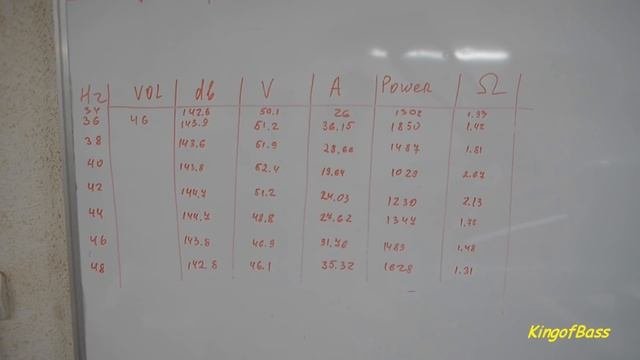 Hz VOL db V A Power Ω
34 142.6 50.1 26 1302 1.93
36 46 143.9 51.2 36.15 1850 1.42
38 143.6 51.9 28.66 1487 1.81
40 143.8 52.4 19.64 1029 2.67
42 144.7 51.2 24.03 1230 2.13
44 144.7 48.8 27.62 1347
46 143.8 46.9 31.70 1485 1.48
48 142.8 46.1 35.32 1628 1.31
KingofBass